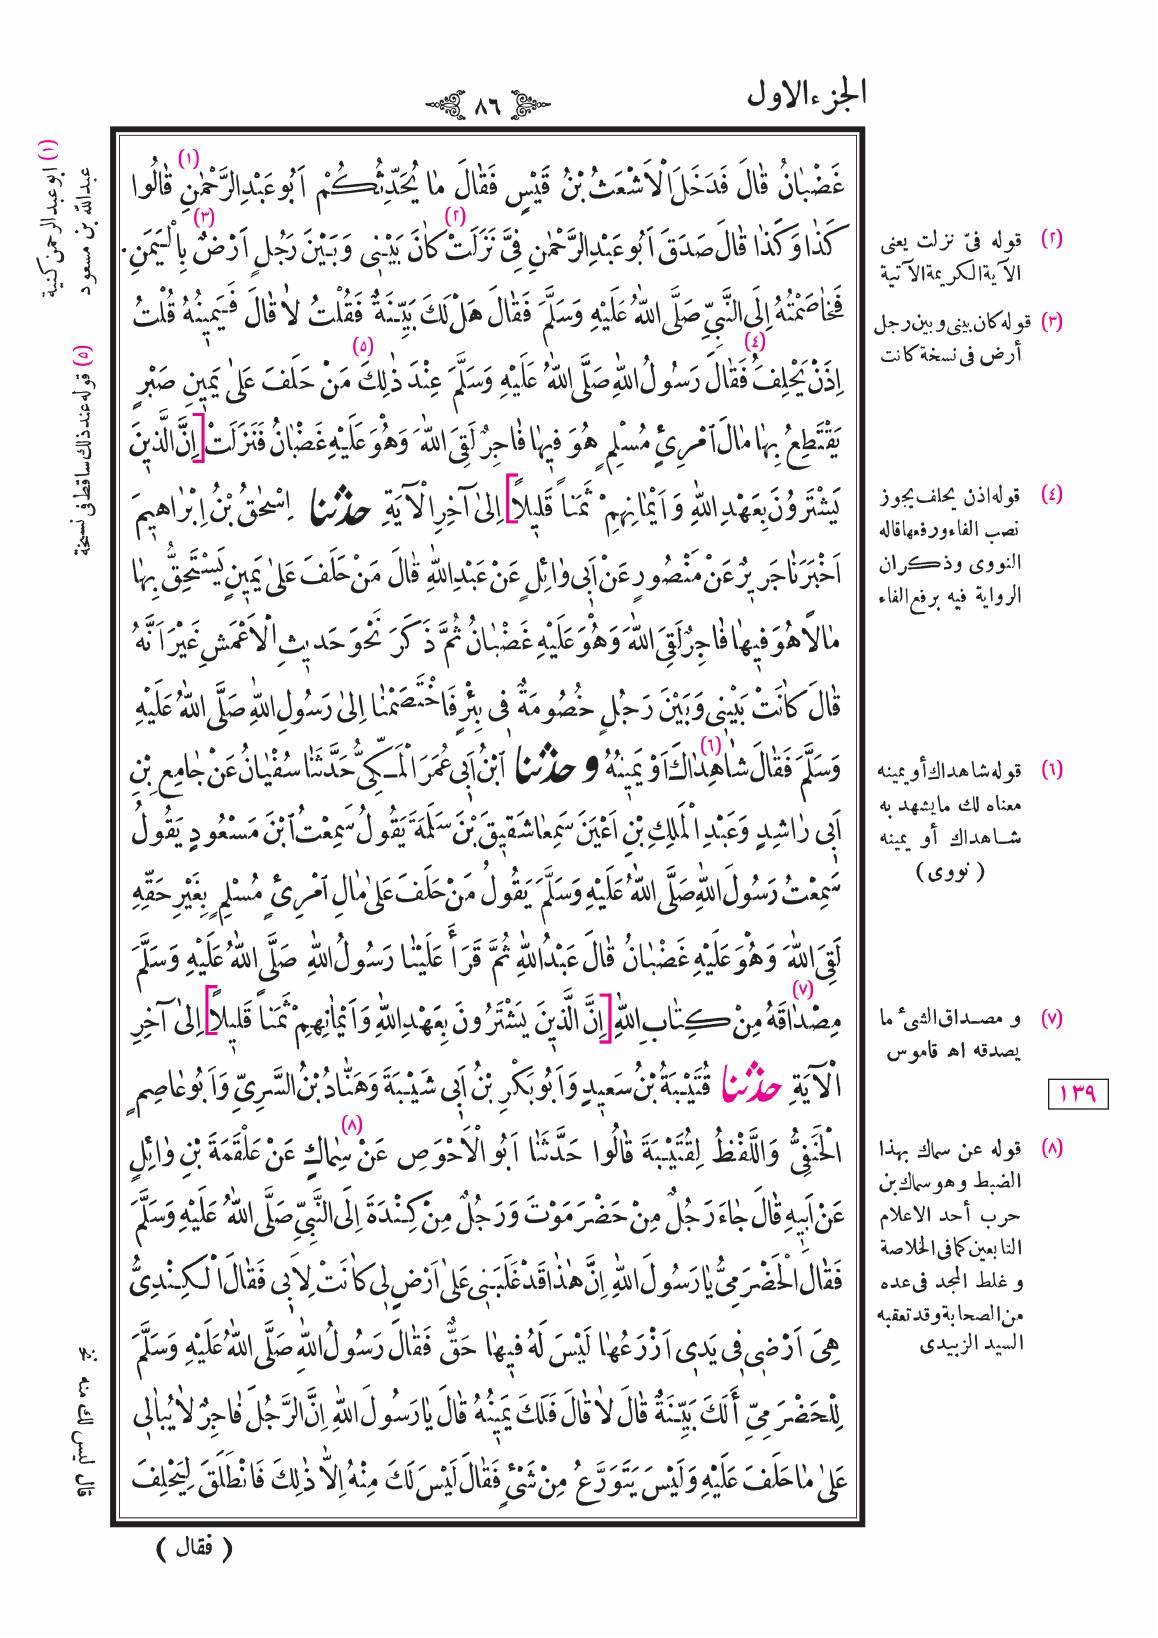 الجزء الاول
٨٦
غَضْبَانُ قَالَ فَدَخَلَ الْاَشْعَثُ بْنُ قَيْسٍ فَقَالَ مَا يُحَدِّثُكُمْ اَبُو عَبْدِ الرَّحْمٰنِ (١) قَالُوا
كَذَا وَكَذَا قَالَ صَدَقَ اَبُو عَبْدِ الرَّحْمٰنِ فِىَّ نَزَلَتْ (٢) كَانَ بَيْنِى وَبَيْنَ رَجُلٍ اَرْضٌ (٣) بِالْيَمَنِ.
فَخَاصَمْتُهُ اِلَى النَّبِىِّ صَلَّى اللّٰهُ عَلَيْهِ وَسَلَّمَ فَقَالَ هَلْ لَكَ بَيِّنَةٌ فَقُلْتُ لَا قَالَ فَيَمِينُهُ قُلْتُ
اِذَنْ يَحْلِفُ (٤) فَقَالَ رَسُولُ اللّٰهِ صَلَّى اللّٰهُ عَلَيْهِ وَسَلَّمَ عِنْدَ ذٰلِكَ (٥) مَنْ حَلَفَ عَلىٰ يَمِينِ صَبْرٍ
يَقْتَطِعُ بِهَا مَالَ امْرِئٍ مُسْلِمٍ هُوَ فِيهَا فَاجِرٌ لَقِىَ اللّٰهَ وَهُوَ عَلَيْهِ غَضْبَانُ فَنَزَلَتْ [اِنَّ الَّذِينَ
يَشْتَرُونَ بِعَهْدِ اللّٰهِ وَاَيْمَانِهِمْ ثَمَناً قَلِيلاً] اِلىٰ آخِرِ الْآيَةِ حدثنا اِسْحٰقُ بْنُ اِبْرَاهِيمَ
اَخْبَرَنَا جَرِيرٌ عَنْ مَنْصُورٍ عَنْ اَبِى وَائِلٍ عَنْ عَبْدِ اللّٰهِ قَالَ مَنْ حَلَفَ عَلىٰ يَمِينٍ يَسْتَحِقُّ بِهَا
مَالاً هُوَ فِيهَا فَاجِرٌ لَقِىَ اللّٰهَ وَهُوَ عَلَيْهِ غَضْبَانُ ثُمَّ ذَكَرَ نَحْوَ حَدِيثِ الْاَعْمَشِ غَيْرَ اَنَّهُ
قَالَ كَانَتْ بَيْنِى وَبَيْنَ رَجُلٍ خُصُومَةٌ فِى بِئْرٍ فَاخْتَصَمْنَا اِلىٰ رَسُولِ اللّٰهِ صَلَّى اللّٰهُ عَلَيْهِ
وَسَلَّمَ فَقَالَ شَاهِدَاكَ (٦) اَوْ يَمِينُهُ وحدثنا ابْنُ اَبِى عُمَرَ الْمَكِّىُّ حَدَّثَنَا سُفْيَانُ عَنْ جَامِعِ بْنِ
اَبِى رَاشِدٍ وَعَبْدِ الْمَلِكِ بْنِ اَعْيَنَ سَمِعَا شَقِيقَ بْنَ سَلَمَةَ يَقُولُ سَمِعْتُ ابْنَ مَسْعُودٍ يَقُولُ
سَمِعْتُ رَسُولَ اللّٰهِ صَلَّى اللّٰهُ عَلَيْهِ وَسَلَّمَ يَقُولُ مَنْ حَلَفَ عَلىٰ مَالِ امْرِئٍ مُسْلِمٍ بِغَيْرِ حَقِّهِ
لَقِىَ اللّٰهَ وَهُوَ عَلَيْهِ غَضْبَانُ قَالَ عَبْدُ اللّٰهِ ثُمَّ قَرَأَ عَلَيْنَا رَسُولُ اللّٰهِ صَلَّى اللّٰهُ عَلَيْهِ وَسَلَّمَ
مِصْدَاقَهُ (٧) مِنْ كِتَابِ اللّٰهِ [اِنَّ الَّذِينَ يَشْتَرُونَ بِعَهْدِ اللّٰهِ وَاَيْمَانِهِمْ ثَمَناً قَلِيلاً] اِلىٰ آخِرِ
الْآيَةِ حدثنا قُتَيْبَةُ بْنُ سَعِيدٍ وَاَبُو بَكْرِ بْنُ اَبِى شَيْبَةَ وَهَنَّادُ بْنُ السَّرِىِّ وَاَبُو عَاصِمٍ
الْحَنَفِىُّ وَاللَّفْظُ لِقُتَيْبَةَ قَالُوا حَدَّثَنَا اَبُو الْاَحْوَصِ عَنْ سِمَاكٍ (٨) عَنْ عَلْقَمَةَ بْنِ وَائِلٍ
عَنْ اَبِيهِ قَالَ جَاءَ رَجُلٌ مِنْ حَضْرَمَوْتَ وَرَجُلٌ مِنْ كِنْدَةَ اِلَى النَّبِىِّ صَلَّى اللّٰهُ عَلَيْهِ وَسَلَّمَ
فَقَالَ الْحَضْرَمِىُّ يَا رَسُولَ اللّٰهِ اِنَّ هٰذَا قَدْ غَلَبَنِى عَلىٰ اَرْضٍ لِى كَانَتْ لِاَبِى فَقَالَ الْكِنْدِىُّ
هِىَ اَرْضِى فِى يَدِى اَزْرَعُهَا لَيْسَ لَهُ فِيهَا حَقٌّ فَقَالَ رَسُولُ اللّٰهِ صَلَّى اللّٰهُ عَلَيْهِ وَسَلَّمَ
لِلْحَضْرَمِىِّ أَلَكَ بَيِّنَةٌ قَالَ لَا قَالَ فَلَكَ يَمِينُهُ قَالَ يَا رَسُولَ اللّٰهِ اِنَّ الرَّجُلَ فَاجِرٌ لَا يُبَالِى
عَلىٰ مَا حَلَفَ عَلَيْهِ وَلَيْسَ يَتَوَرَّعُ مِنْ شَىْءٍ فَقَالَ لَيْسَ لَكَ مِنْهُ اِلاَّ ذٰلِكَ فَانْطَلَقَ لِيَحْلِفَ
( فقال )
(٢) قوله فىّ نزلت يعنى
الآية الكريمة الآتية
(٣) قوله كان بينى وبين رجل
أرض فى نسخة كانت
(٤) قوله اذن يحلف يجوز
نصب الفاء ورفعها قاله
النووى وذكر ان
الرواية فيه برفع الفاء
(٦) قوله شاهداك أو يمينه
معناه لك ما يشهد به
شاهداك أو يمينه
( نووى )
(٧) و مصداق الشىء ما
يصدقه اه قاموس
١٣٩
(٨) قوله عن سماك بهذا
الضبط وهو سماك بن
حرب أحد الاعلام
التابعين كما فى الخلاصة
و غلط المجد فى عده
من الصحابة وقد تعقبه
السيد الزبيدى
(١) ابو عبد الرحمن كنية
عبد الله بن مسعود
(٥) قوله عند ذلك ساقط فى نسخة
قال ليس لك منه نخ